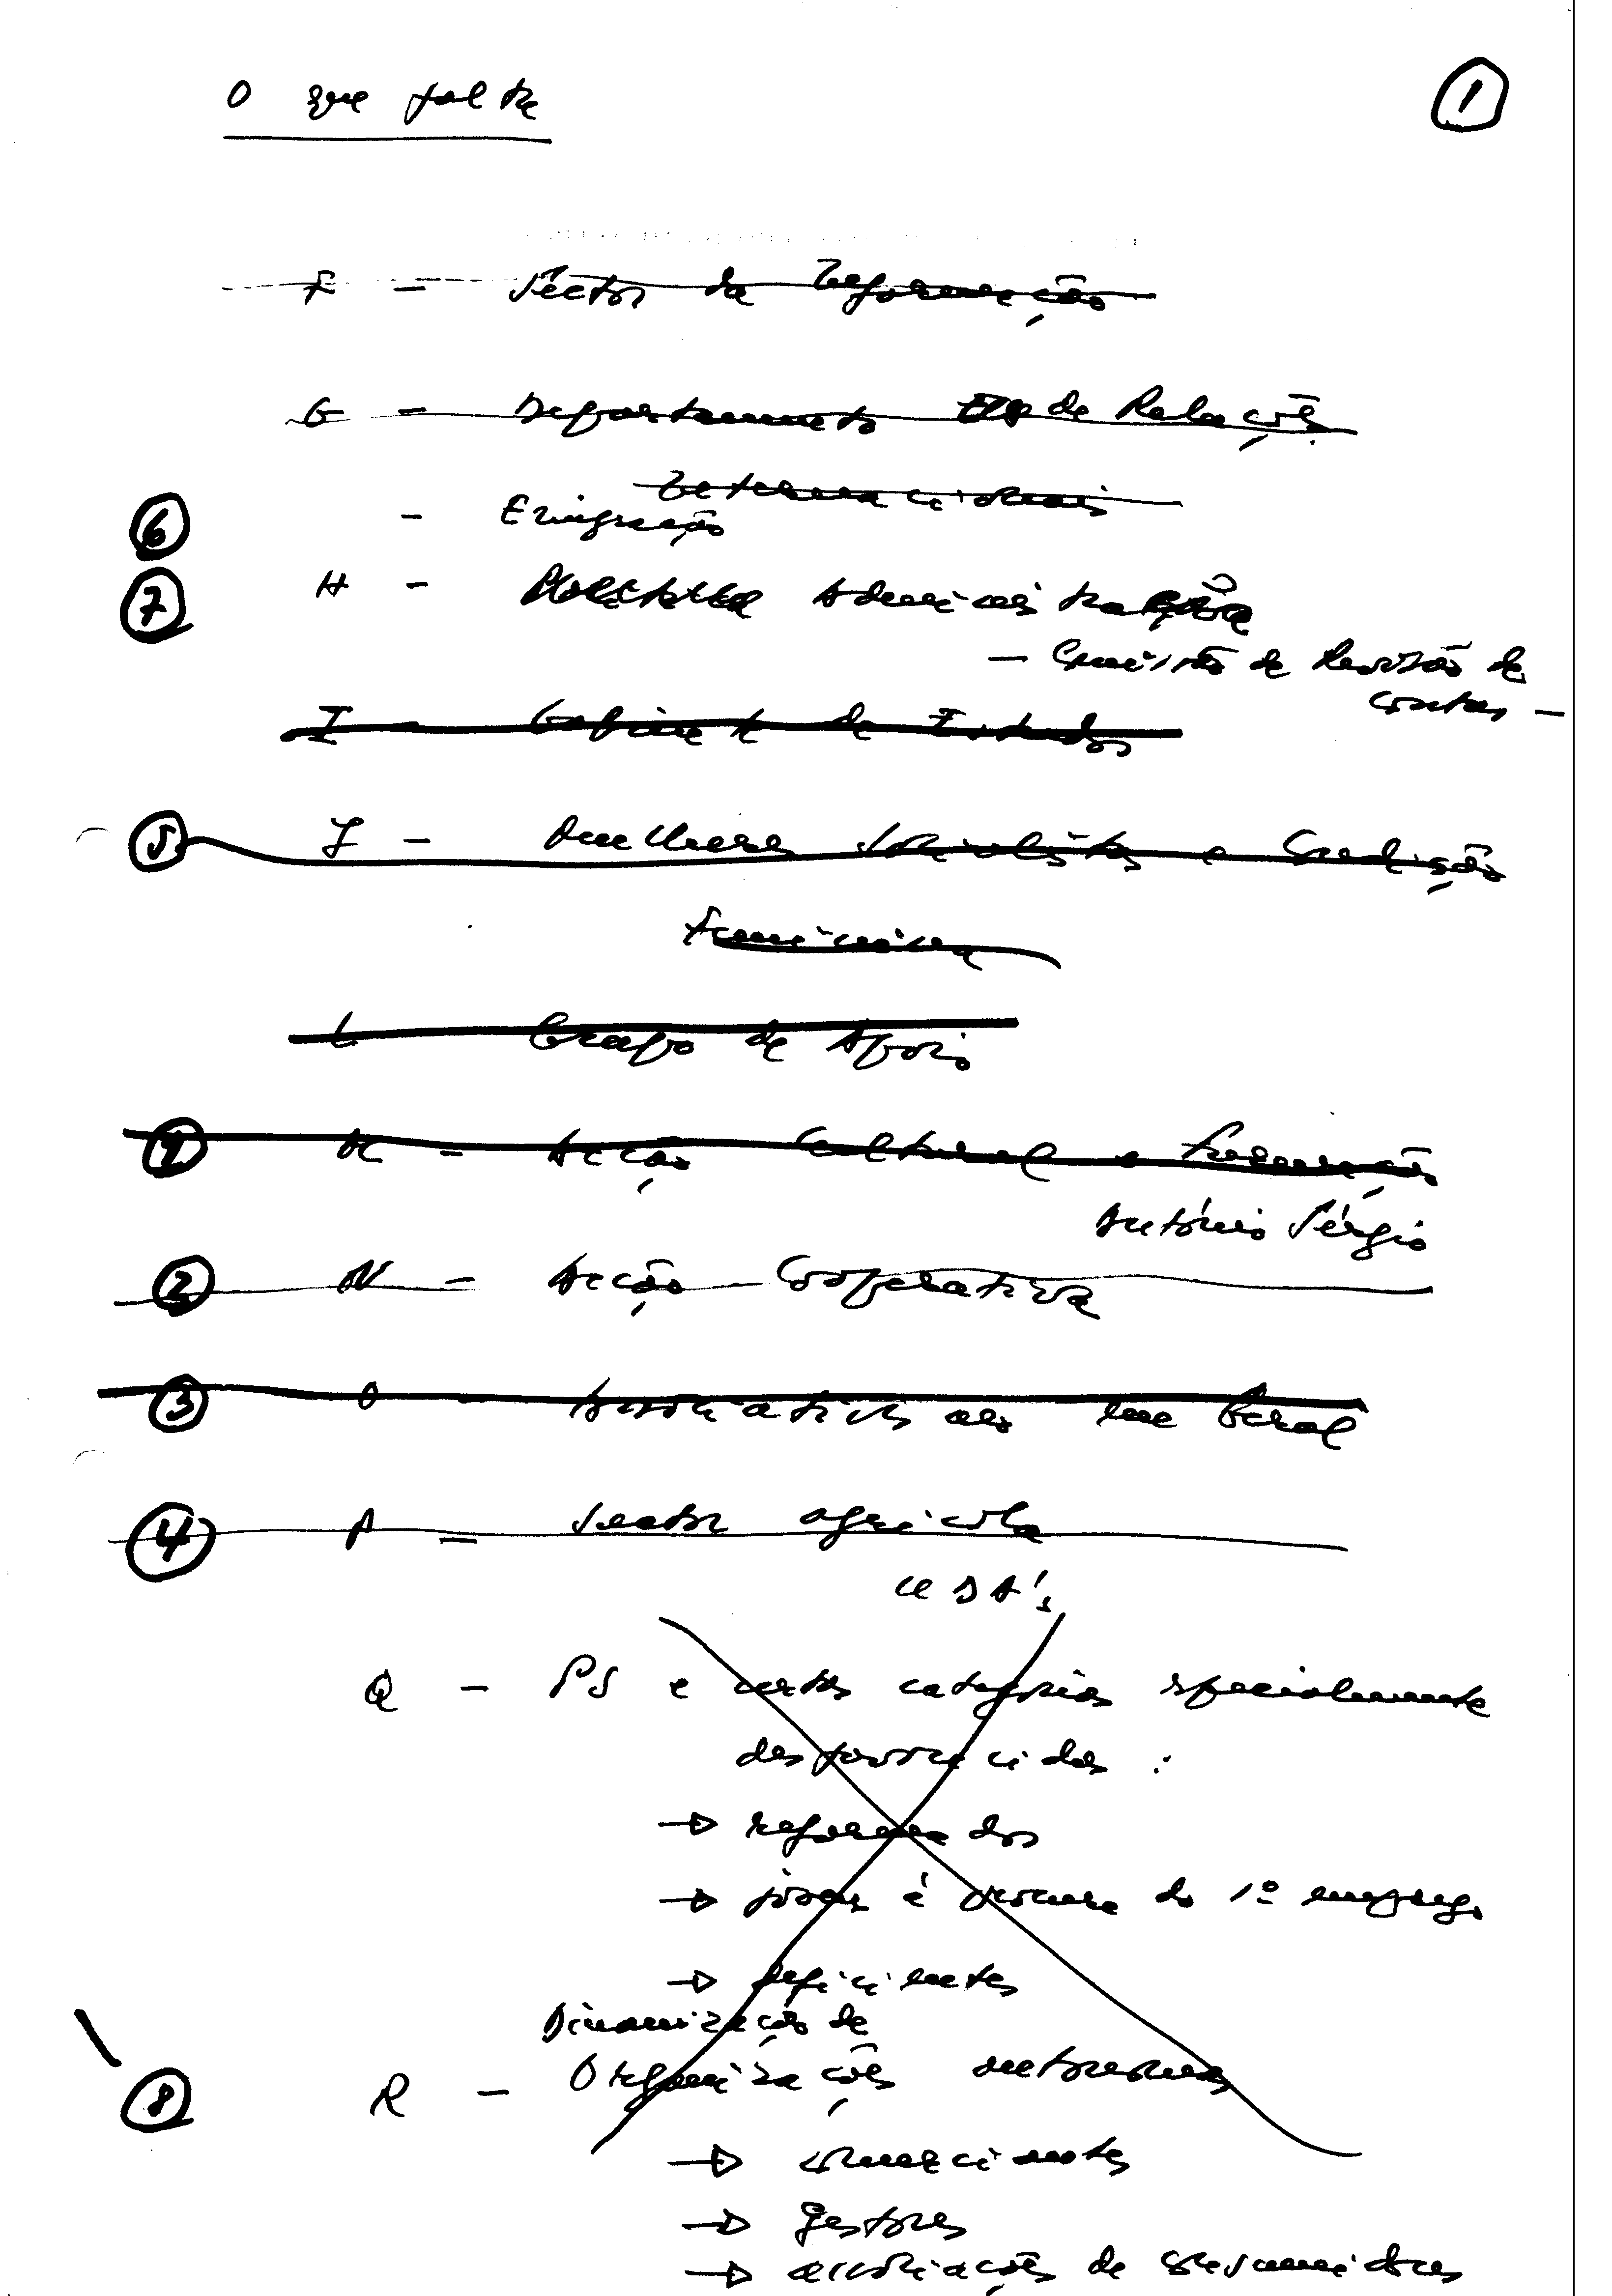 O que falta
1
F - Sector da Informação
G - Departamento de Relações
Internacionais
6 - Emigração
7 H - Administração
- Comissão de Revisão de
Contas -
I - Gabinete de Estudos
5 J - Mulheres Socialistas e Condição
Feminina
L Grupo de Apoio
1 M - Acção Cultural e Formação
António Sérgio
2 N - Acção Cooperativa
3 O - Associativismo em Geral
4 P - Sector agrícola
UEDA's
Q - PS e certas categorias especialmente
desfavorecidas :
→ reformados
→ jovens à procura do 1º emprego
→ deficientes
Dinamização de
8 R - Organizações autónomas
→ comerciantes
→ gestores
→ associações de consumidores